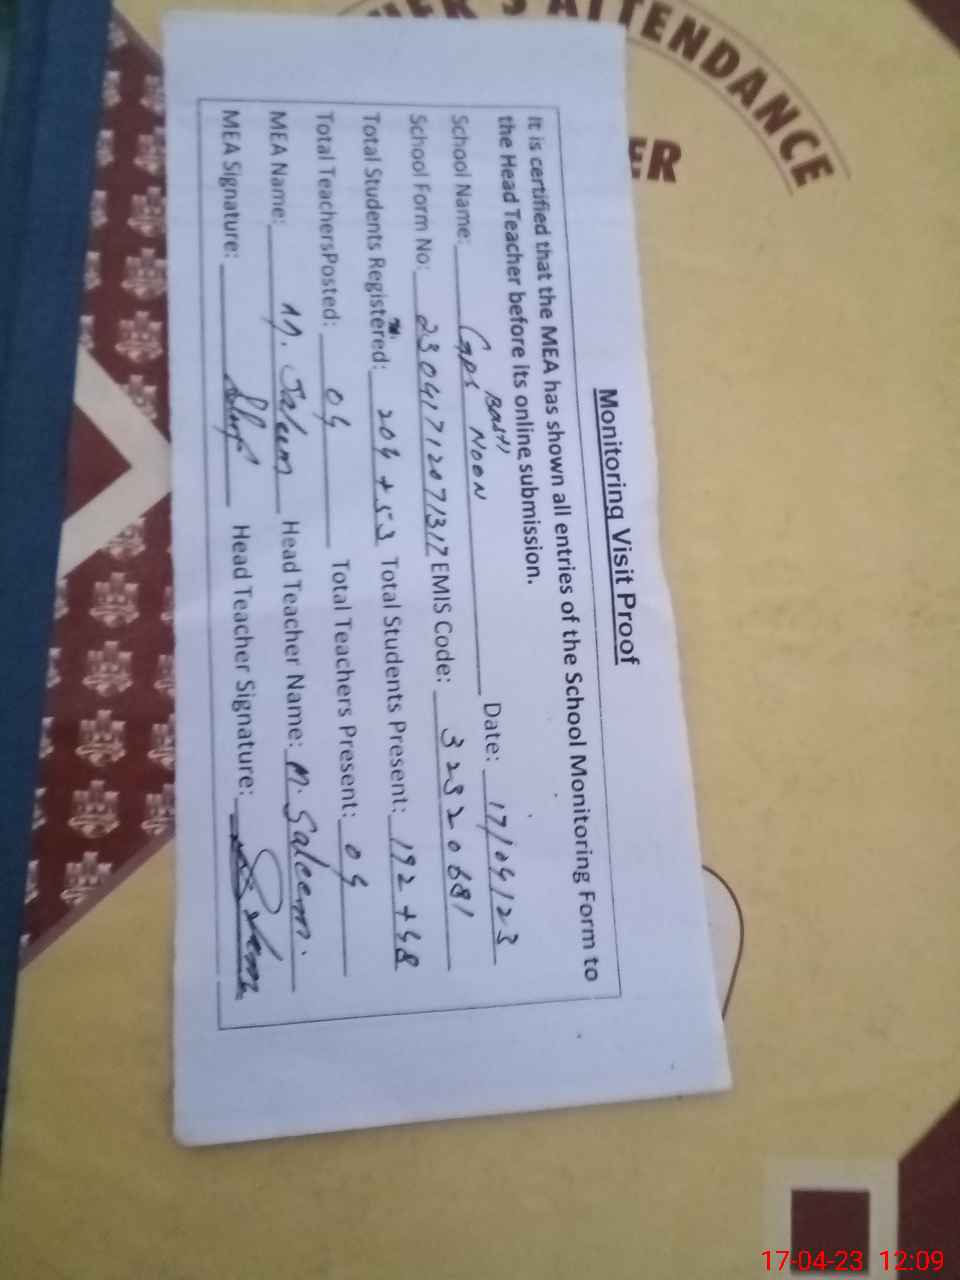 ATTENDANCE
ER
Monitoring Visit Proof
It is certified that the MEA has shown all entries of the School Monitoring Form to
the Head Teacher before its online submission.
School Name: GPS Basti Noon Date: 17/04/23
School Form No: 230417120713 EMIS Code: 32320681
Total Students Registered: 204 + 53 Total Students Present: 192 + 48
Total TeachersPosted: 04 Total Teachers Present: 04
MEA Name: M. Saleem Head Teacher Name: M. Saleem.
MEA Signature: Head Teacher Signature:
17-04-23 12:09